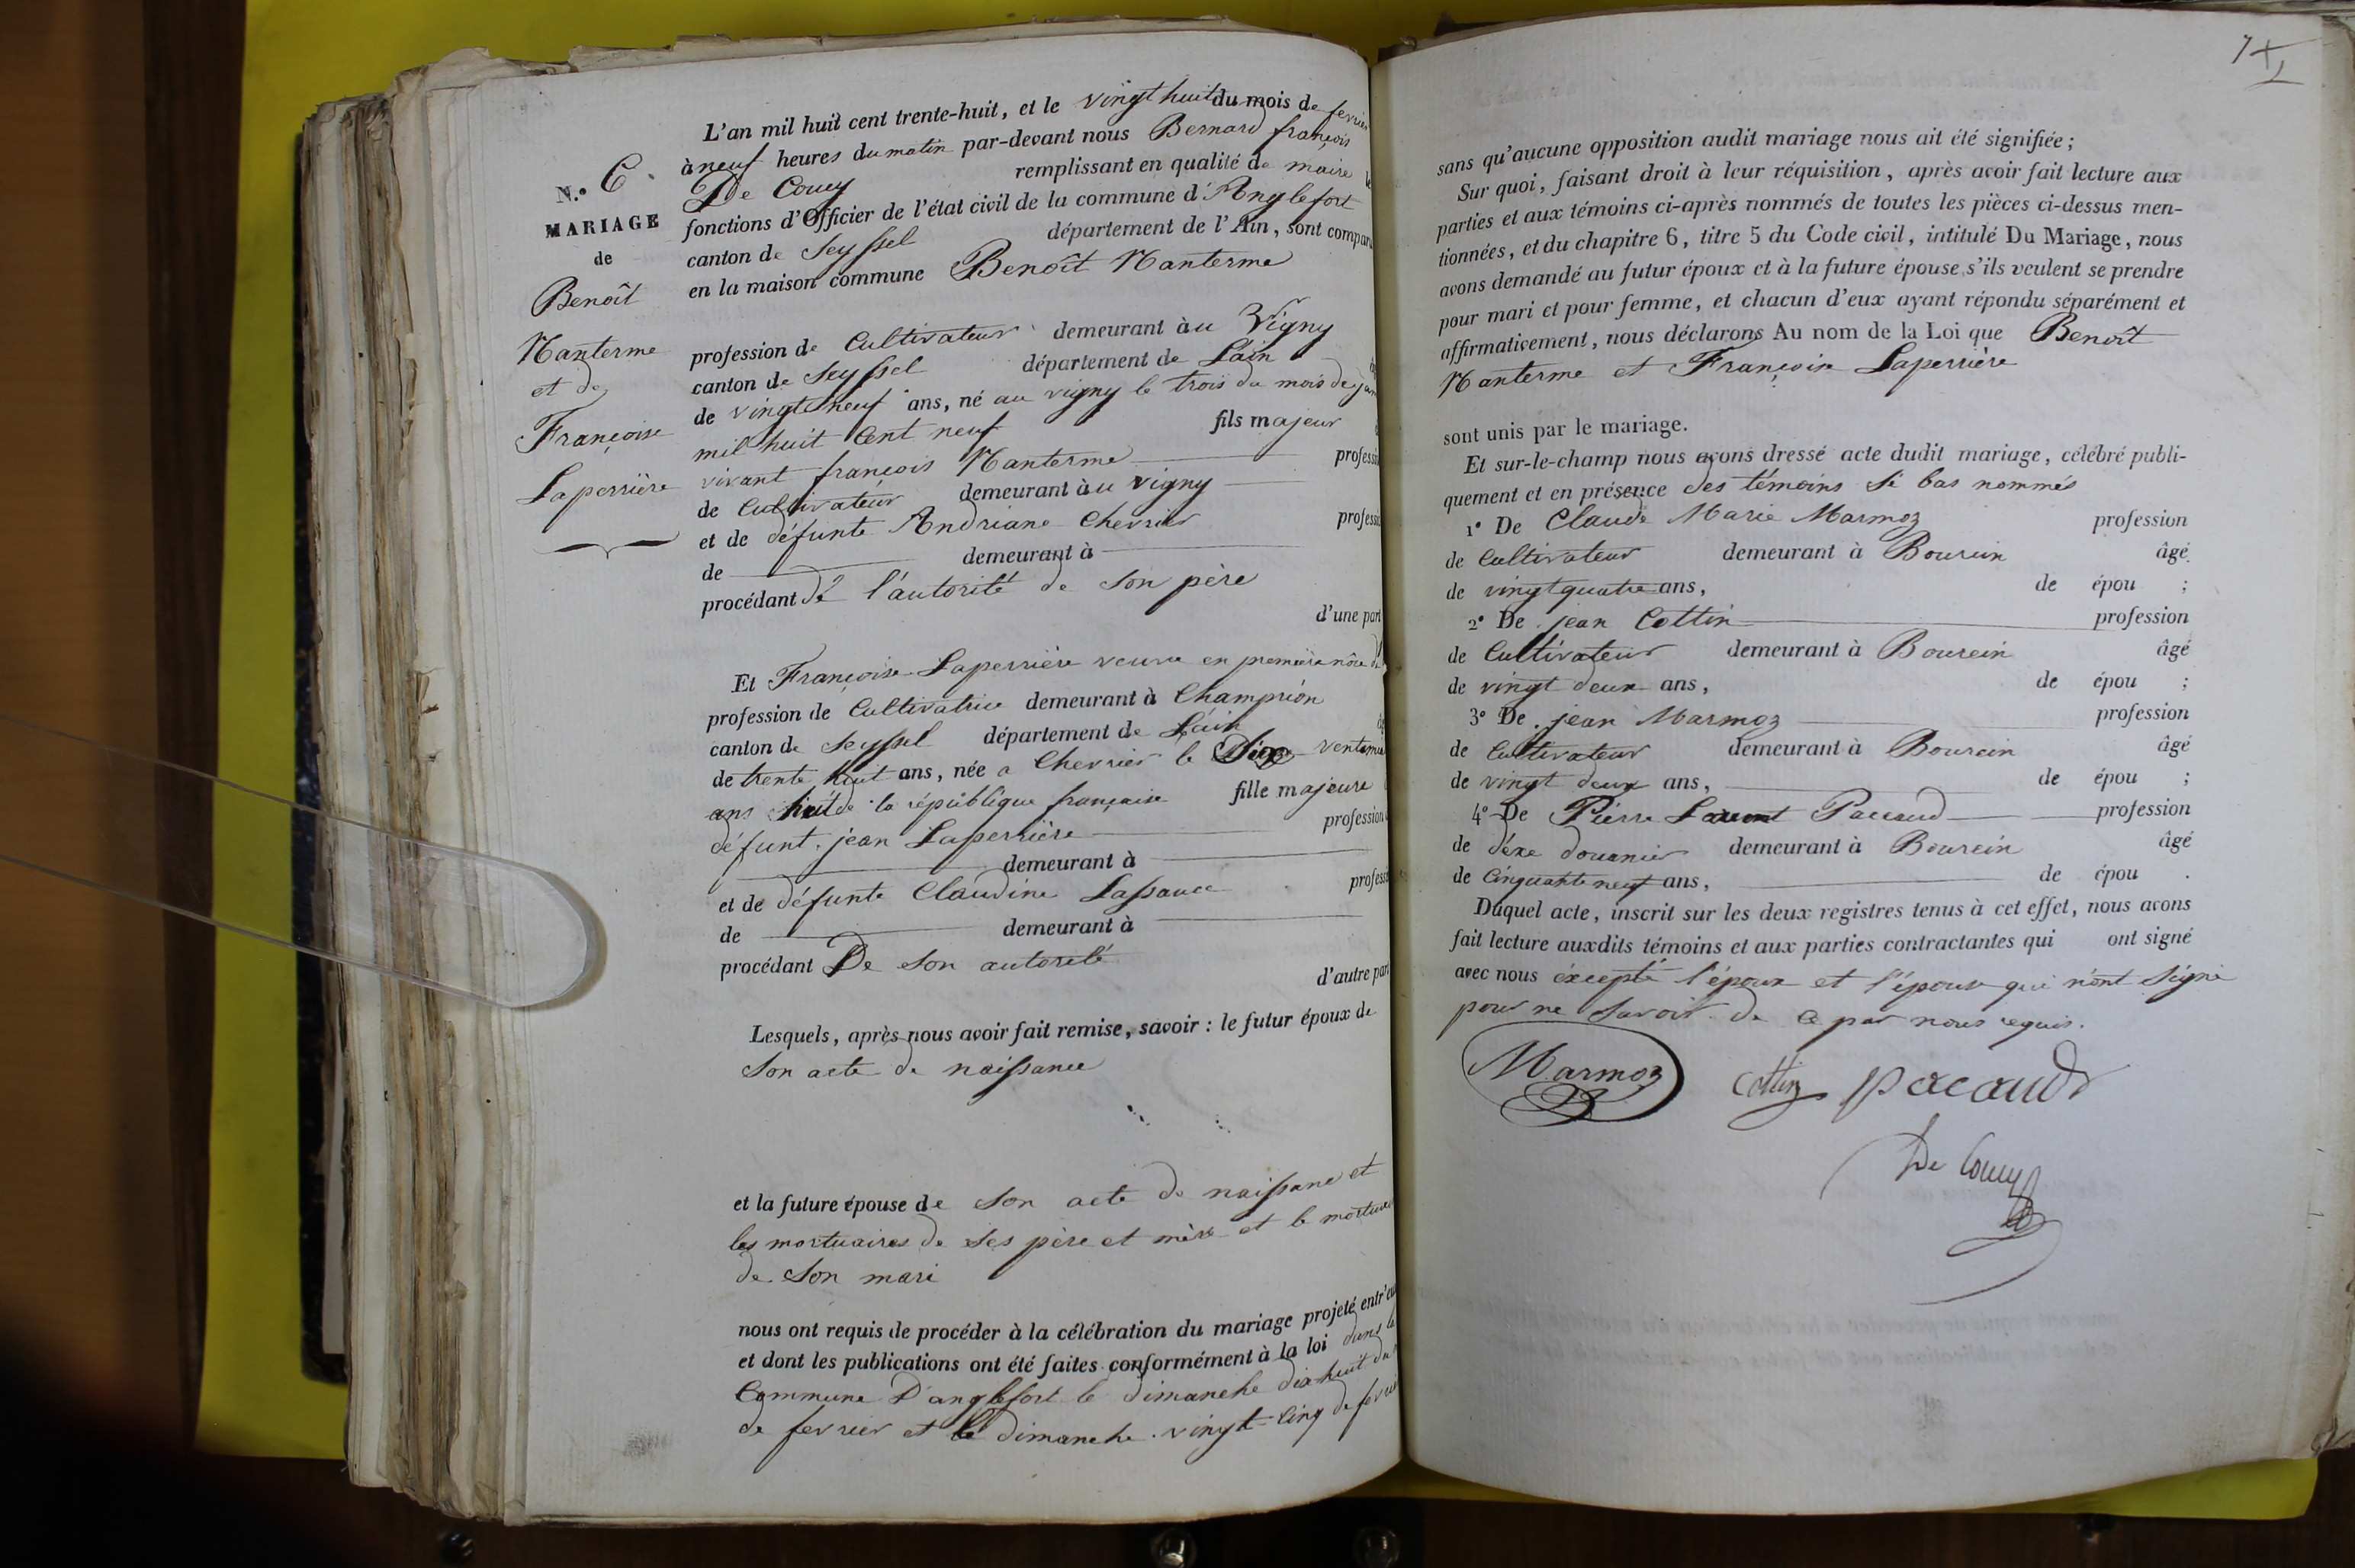 L'an mil huit cent trente-huit, et le vingt huit du mois de fevrier
à neuf heures du matin par-devant nous Bernard françois
De Coucy remplissant en qualité de maire
fonctions d'Officier de l'état civil de la commune d'Anglefort
canton de Seyssel département de l'Ain, sont compar
en la maison commune Benoît Nanterme
N.º 6.
MARIAGE
de
Benoît
Nanterme
et de
Françoise
Laperrière
profession de Cultivateur demeurant àu Vigny
canton de Seyssel département de Lain
de vingt neuf ans, né au vigny le trois du mois de jan
mil huit Cent neuf fils majeur
vivant françois Nanterme professi
de Cultivateur demeurant àu vigny
et de défunte Andriane Chevrier professi
de demeurant à
procédant de l'autorité de son père
d'une part
Et Françoise Laperrière veuve en première nôce
profession de Cultivatrice demeurant à Champrion
canton de Seyssel département de Lain
de trente huit ans, née a Chevrier le Dix ventôse
ans huit de la république française fille majeure
défunt jean Laperrière profession
demeurant à
et de défunte Claudine Lassauce profess
de demeurant à
procédant De son autorité
d'autre part
Lesquels, après nous avoir fait remise, savoir : le futur époux de
Son acte de naissance
et la future épouse de son acte de naissance et
les mortuaires de ses père et mère et le mortuai
de Son mari
nous ont requis de procéder à la célébration du mariage projeté entr'eu
et dont les publications ont été faites conformément à la loi dans la
Commune D'anglefort le dimanche dix huit du
de fevrier et le dimanche vingt-cinq de fevrier
sans qu'aucune opposition audit mariage nous ait été signifiée ;
Sur quoi, faisant droit à leur réquisition, après avoir fait lecture aux
parties et aux témoins ci-après nommés de toutes les pièces ci-dessus men-
tionnées, et du chapitre 6, titre 5 du Code civil, intitulé Du Mariage, nous
avons demandé au futur époux et à la future épouse s'ils veulent se prendre
pour mari et pour femme, et chacun d'eux ayant répondu séparément et
affirmativement, nous déclarons Au nom de la Loi que Benoît
Nanterme et Françoise Laperrière
sont unis par le mariage.
Et sur-le-champ nous avons dressé acte dudit mariage, célébré publi-
quement et en présence des témoins si bas nommés
1º De Claude Marie Marmoz profession
de Cultivateur demeurant à Bourcin âgé
de vingt quatre ans, de épou ;
2º De jean Cottin profession
de Cultivateur demeurant à Bourcin âgé
de vingt deux ans, de épou ;
3º De jean Marmoz profession
de Cultivateur demeurant à Bourcin âgé
de vingt deux ans, de épou ;
4º De Pierre Laurent Paccaud profession
de d'éxe douanier demeurant à Bourcin âgé
de Cinquante neuf ans, de épou .
Duquel acte, inscrit sur les deux registres tenus à cet effet, nous avons
fait lecture auxdits témoins et aux parties contractantes qui ont signé
avec nous excepté l'époux et l'épouse qui n'ont signé
pour ne savoir de ce par nous requis.
Marmoz Cottin pacaud
De Coucy